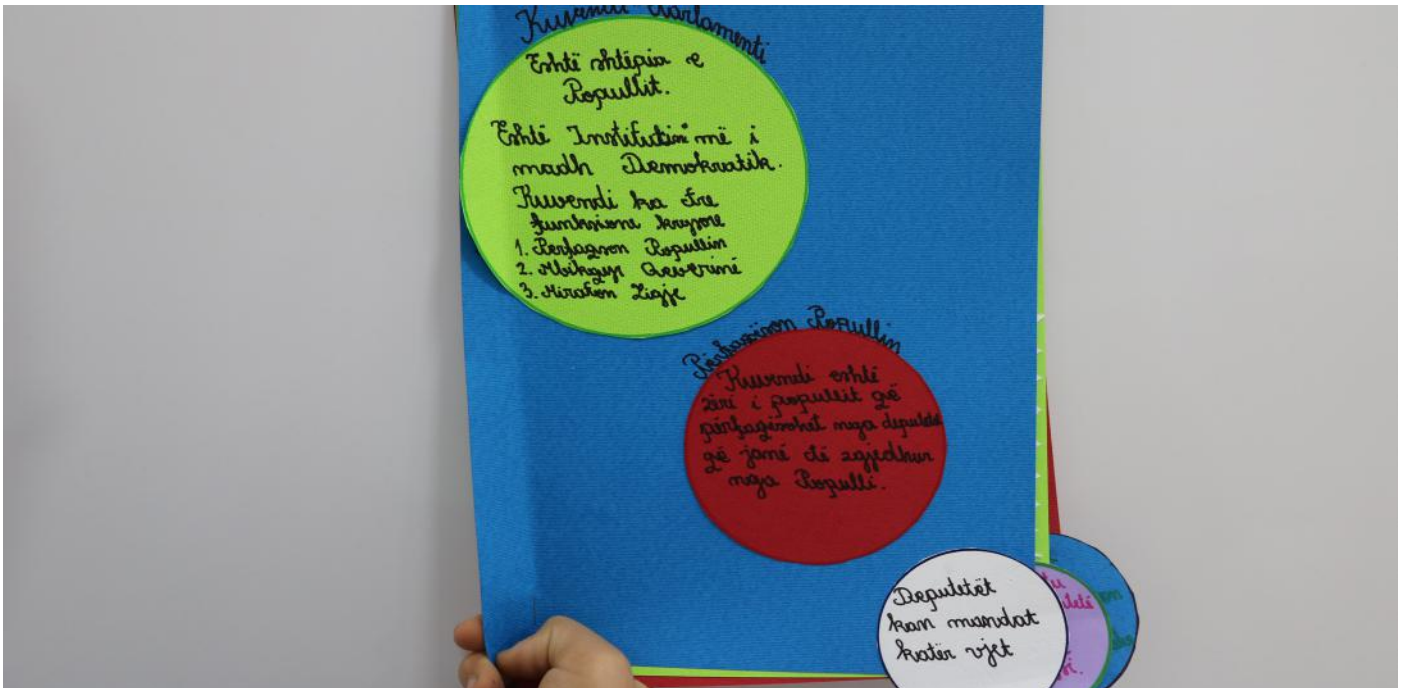 Kuvendi Parlamenti
Është shtëpia e
Popullit.
Eshtë Institution më i
madh Demokratik.
Kuvendi ka tre
funksione krysore
1. Perfaqson Popullin
2. Mbikqyr Qeverinë
3. Miraton Ligje
Përfaqëson Popullin
Kuvendi eshtë
zëri i popullit që
përfaqësohet nga deputetët
që janë të zgjedhur
nga Populli.
Deputetët
kan mandat
katër vjet